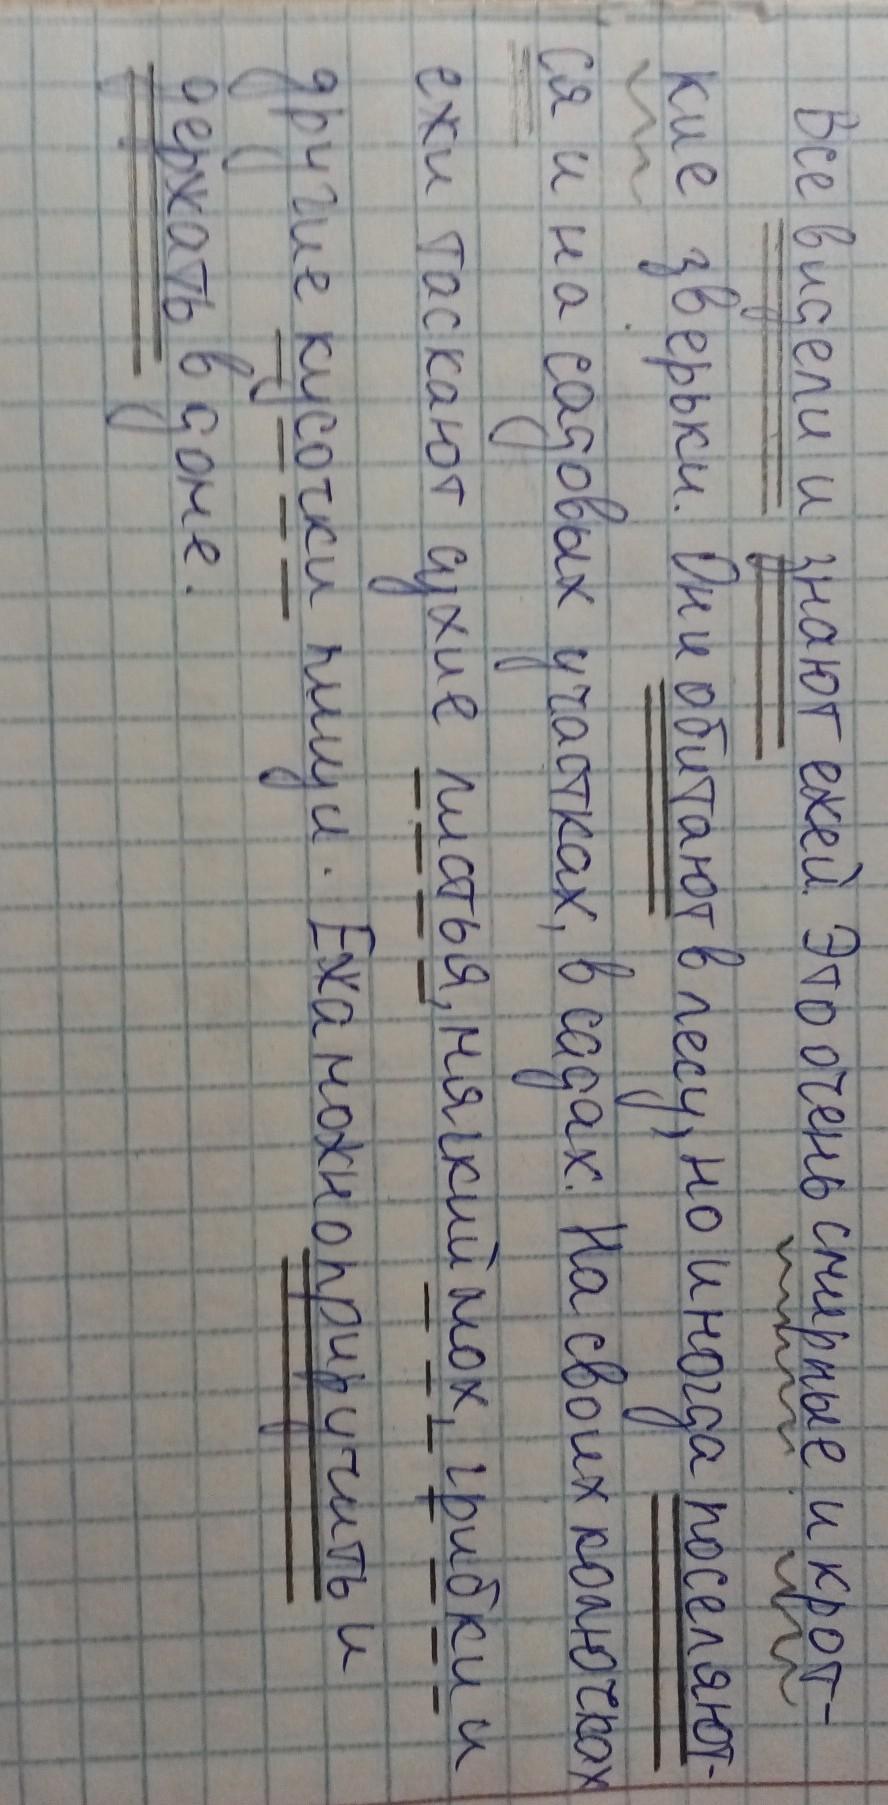 Все видели и знают ежей. Это очень смирные и крот-
кие зверьки. Они обитают в лесу, но иногда поселяют-
ся и на садовых участках, в садах. На своих колючках
ежи таскают сухие листья, мягкий мох, грибки и
другие кусочки пищи. Ежа можно приручить и
держать в доме.